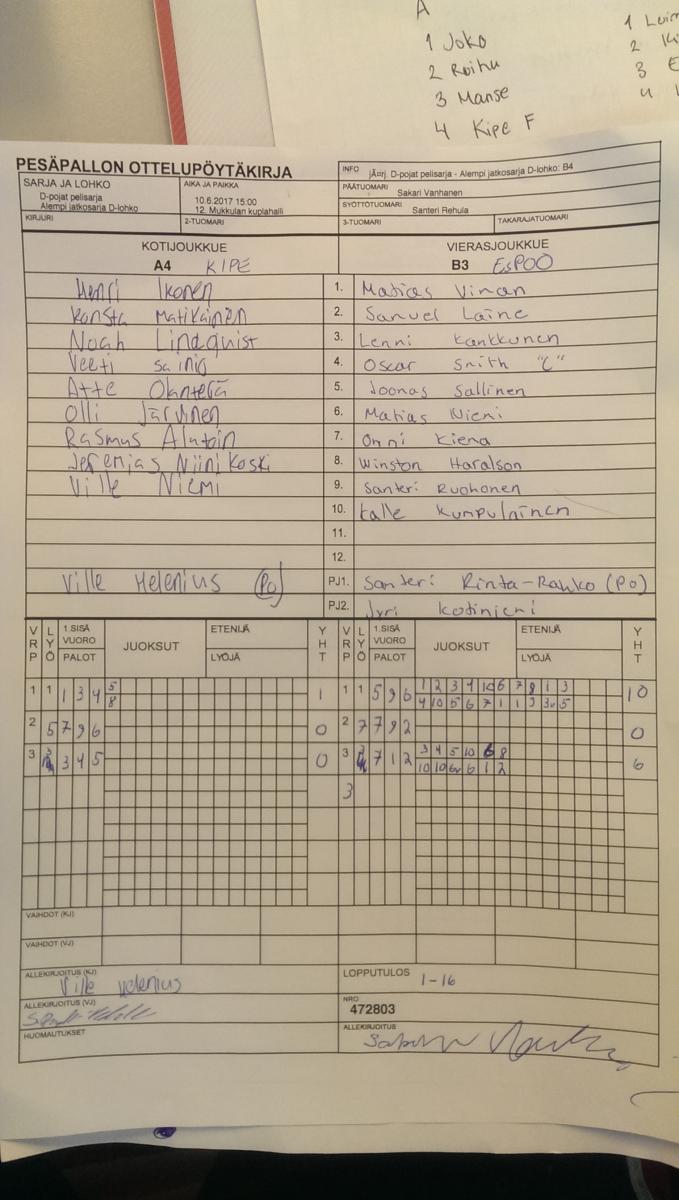 A
1 Joko
2 Roihu
3 Manse
4 Kipe F
1
2 Ki
3 E
4
PESÄPALLON OTTELUPÖYTÄKIRJA
INFO jÄœrj. D-pojat pelisarja - Alempi jatkosarja D-lohko: B4
SARJA JA LOHKO
D-pojat pelisarja
Alempi jatkosarja D-lohko
AIKA JA PAIKKA
10.6.2017 15:00
12. Mukkulan kuplahalli
PÄÄTUOMARI Sakari Vanhanen
SYÖTTÖTUOMARI Santeri Rehula
KIRJURI 2-TUOMARI 3-TUOMARI TAKARAJATUOMARI
KOTIJOUKKUE VIERASJOUKKUE
A4 KIPE B3 ESPOO
Henri Ikonen 1. Matias Viman
Konsta Matikainen 2. Samuel Laine
Noah Lindquist 3. Lenni Kankkunen
Veeti Sainio 4. Oscar Smith "C"
Atte Olantera 5. Joonas Sallinen
Olli Järvinen 6. Matias Niemi
Rasmus 7. Onni Kiema
Jeremias Niinikoski 8. Winston Haralson
Ville Niemi 9. Santeri Ruohonen
10. Kalle Kumpulainen
11.
12.
Ville Helenius (PO) PJ1. Santeri Rinta-Rahko (PO)
PJ2. Jyri Kotiniemi
VRP LYÖ 1.SISÄ VUORO PALOT JUOKSUT ETENIJÄ LYÖJÄ YHT VRP LYÖ 1.SISÄ VUORO PALOT JUOKSUT ETENIJÄ LYÖJÄ YHT
1 1 1 3 4 5 1 1 1 5 9 6 1 2 3 4 10 6 7 9 1 3 10
8 4 10 5 6 7 1 1 3 5
2 5 7 9 6 0 2 7 7 9 2 0
3 3 4 5 0 3 7 1 2 3 4 5 10 6 8 6
10 10 6 1 2
3
VAIHDOT (KJ)
VAIHDOT (VJ)
ALLEKIRJOITUS (KJ) Ville Helenius LOPPUTULOS 1-16
ALLEKIRJOITUS (VJ) NRO 472803
HUOMAUTUKSET ALLEKIRJOITUS